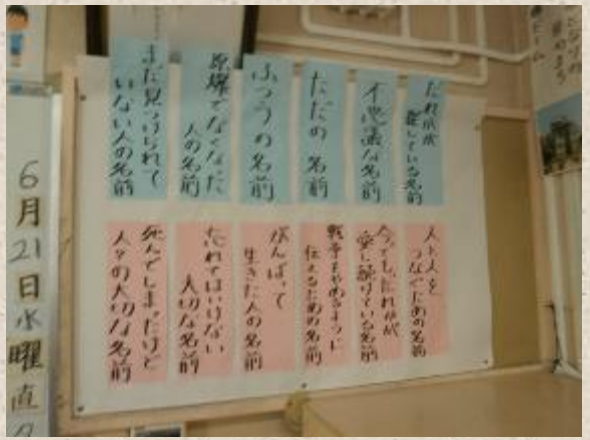 だれかが
愛している名前
不思議な名前
ただの名前
ふつうの名前
原爆でなくなった
人の名前
まだ見つけられて
いない人の名前
人と人を
つなぐための名前
今でも、だれかが
愛し続けている名前
戦争をやめるように
伝えるための名前
がんばって
生きた人の名前
忘れてはいけない
大切な名前
死んでしまったけど
人々の大切な名前
6月21日水曜直